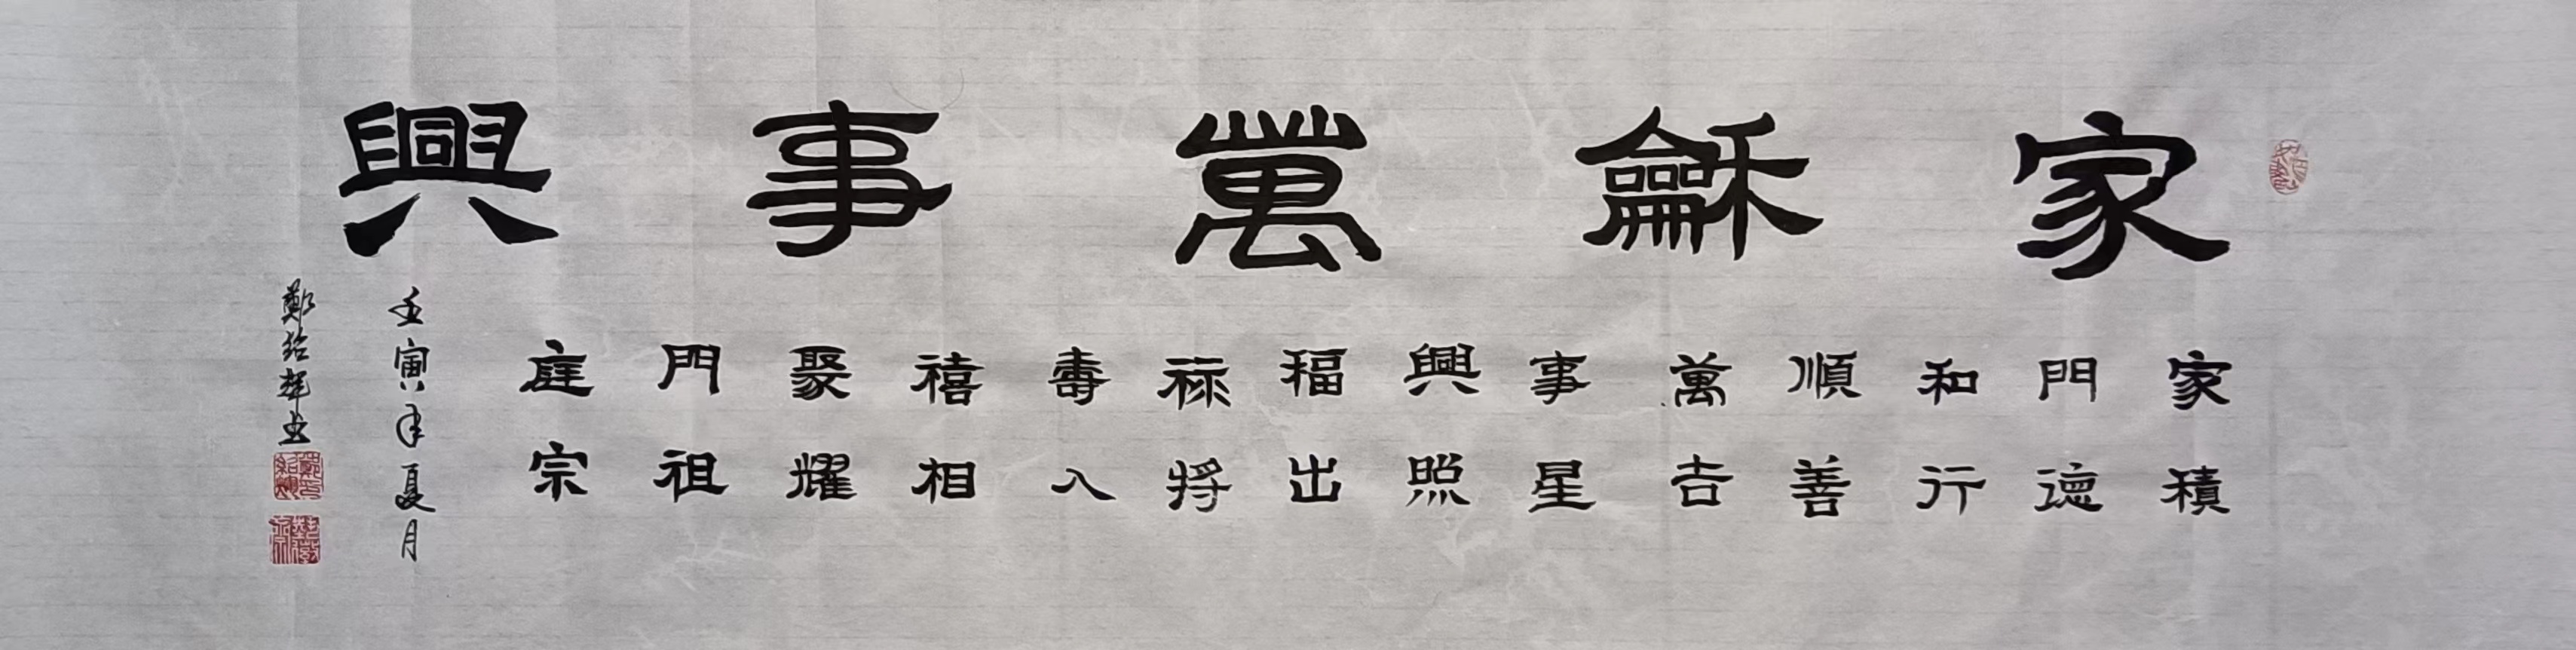 家龢萬事興
家門和順萬事興福祿壽禧聚門庭
積德行善吉星照出将入相耀祖宗
壬寅年夏月
鄭紹輝書